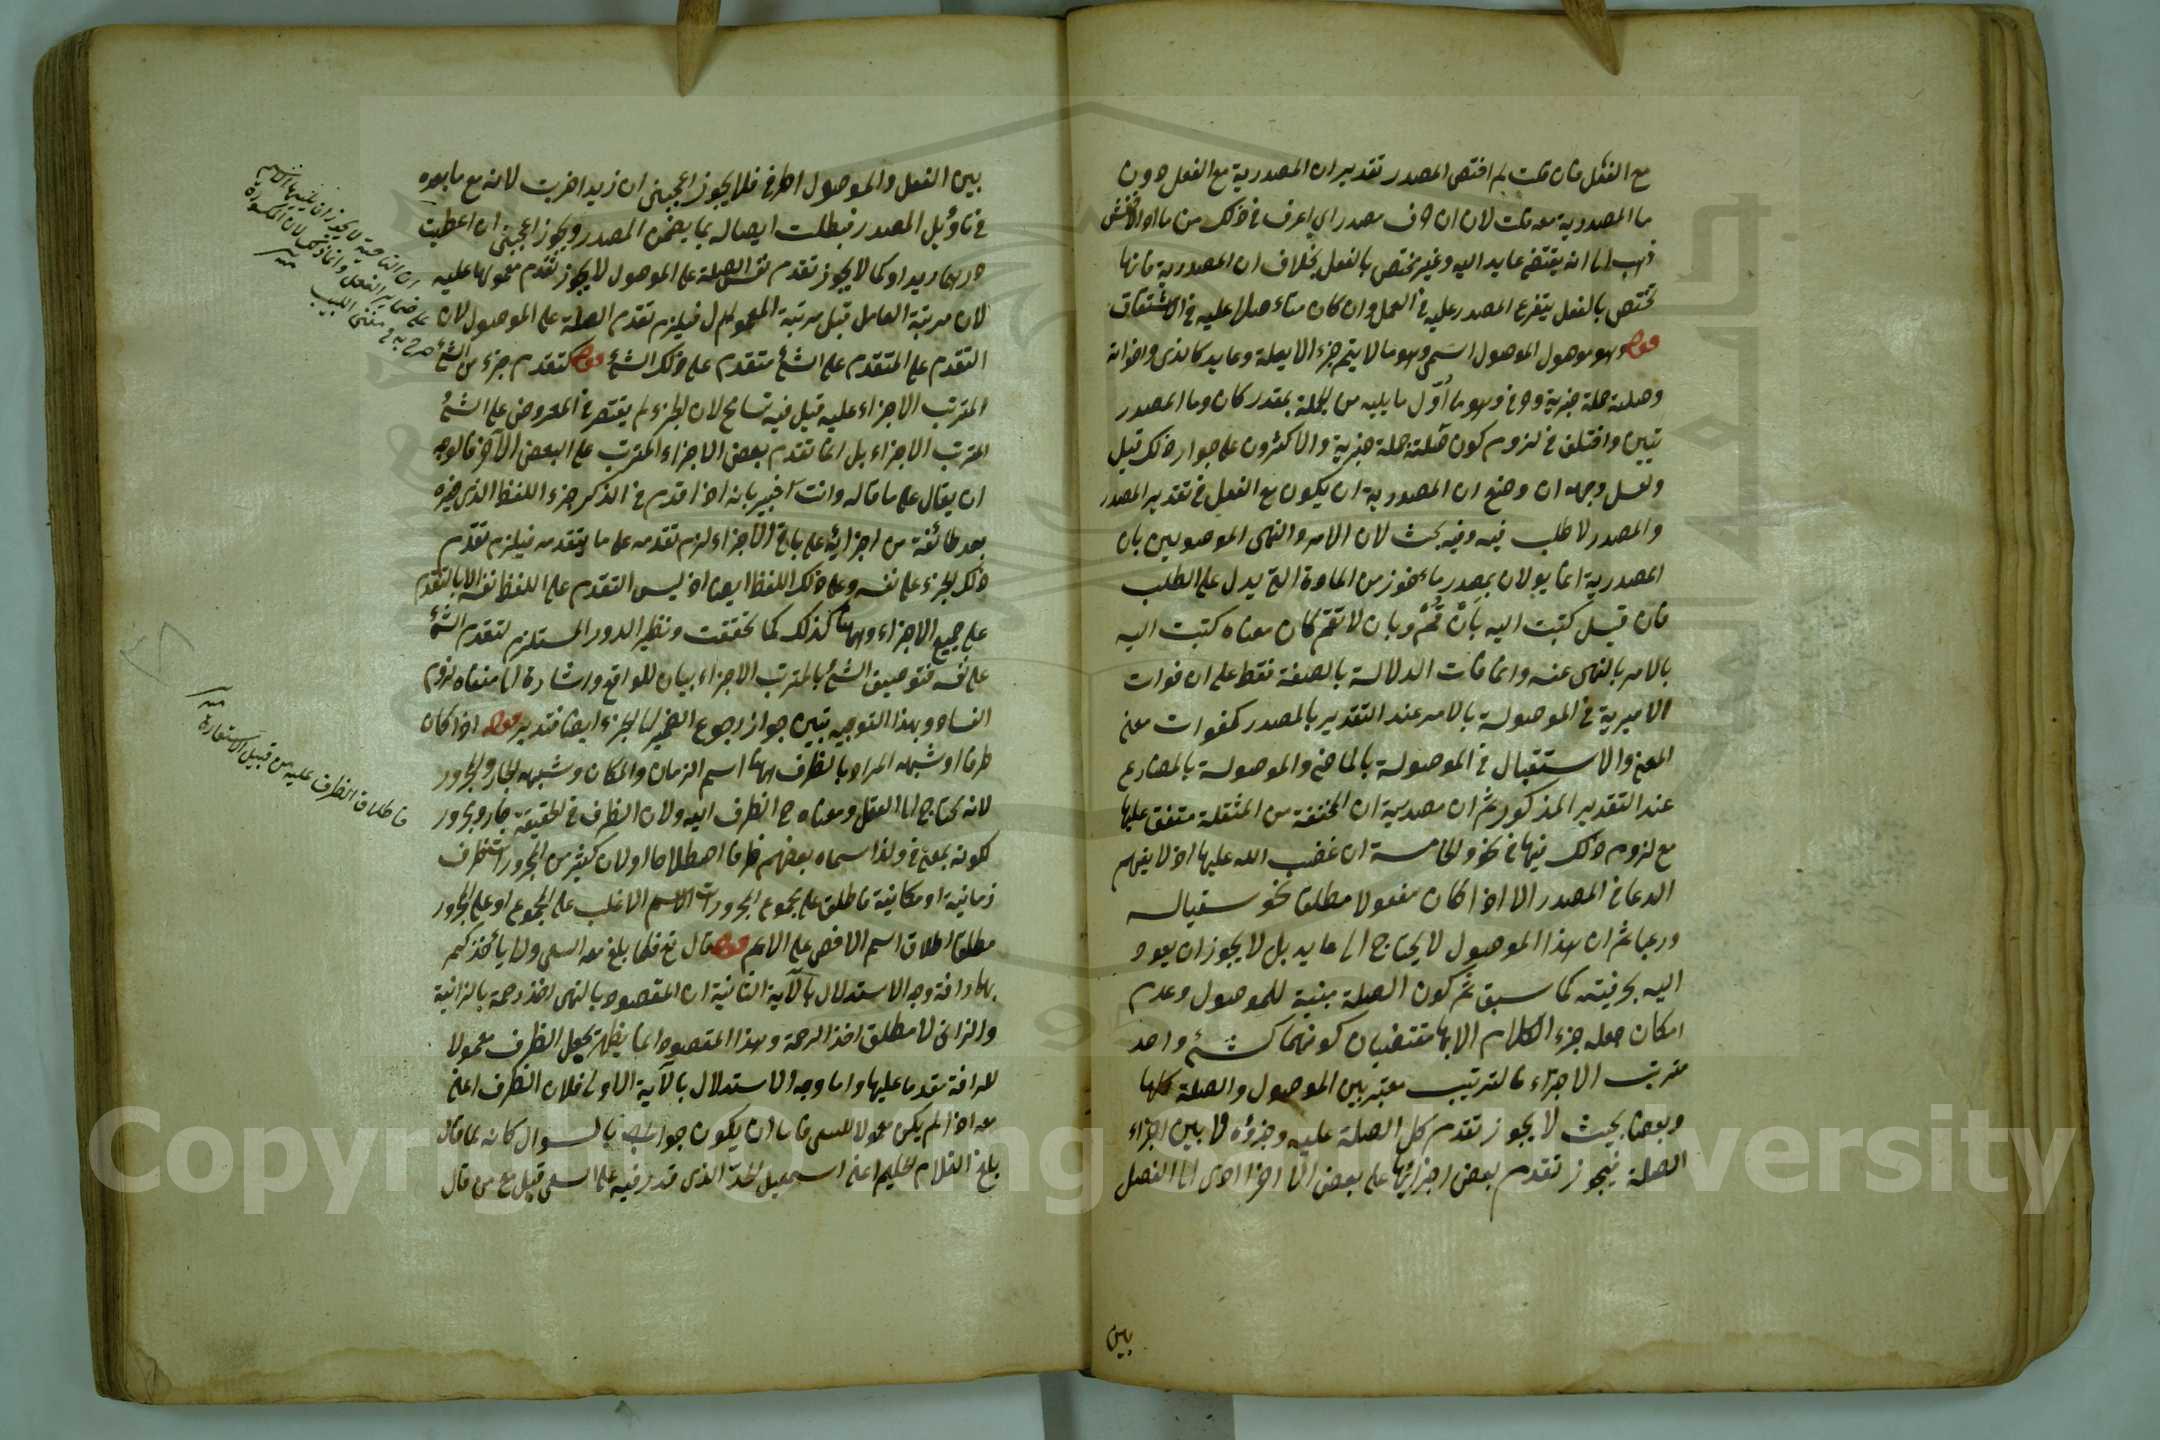 مع الفعل فان قلت لم اختص المصدر تقدير ان المصدرية مع الفعل دون
ما المصدرية معه قلت لان ان حرف مصدر اي اعرف في ذلك من ما اذ الاخفش
ذهب الى انه يقتضى عايد اليه وغير مختص بالفعل بخلاف ان المصدرية فانها
تختص بالفعل يتفرع المصدر عليه في العمل وان كان متأصلا عليه في الاشتقاق
قوله وهو موصول الموصول اسمى وهو ما لا يتم جزء الا بصلة وعايد كالذى واخواته
وصلته جملة خبرية وحرفى وهو ما اول ما يليه من الجملة بمصدر كان وما المصدر
تيين واختلف في لزوم كون صلته جملة خبرية والاكثرون على جواز ذلك قيل
ولعل وجهه ان وضع ان المصدرية ان يكون مع الفعل في تقدير المصدر
والمصدر لا طلب فيه وفيه بحث لان الامر والنهى الموصولين بان
المصدرية انما يولان بمصدر مأخوذ من المادة التى يدل على الطلب
فان قيل كتبت اليه بان قم وبان لا تقم كان معناه كتبت اليه
بالامر بالنهى عنه وانما فات الدلالة بالصيغة فقط على ان فوات
الاميرية في الموصولة بالامر عند التقدير بالمصدر كفوات معنى
المضى والاستقبال في الموصولة بالماضى والموصولة بالمضارع
عند التقدير المذكور ثم ان مصدرية ان المخففة من المثقلة متفق عليها
مع لزوم ذلك فيها في نحو والخامسة ان غضب الله عليها اذ لا يفهم
الدعا في المصدر الا اذا كان مفعولا مطلقا نحو سقيا له
ورعيا ثم ان هذا الموصول لا يحتاج الى عايد بل لا يجوز ان يعود
اليه بحرفيته كما سبق ثم كون الصلة مبنية للموصول وعدم
امكان جعله جزء الكلام الا بها مقتضيان كونهما كشئ واحد
مترتب الاجزاء فالترتيب معتبر بين الموصول والصلة كلها
وبعضا بحيث لا يجوز تقدم كل الصلة عليه وجزؤه فا بين اجزاء
الصلة فيجوز تقدم بعض اجزائها على بعض الا اذا ادى الى الفصل
بين
بين الفعل والموصول الحرفى فلا يجوز اعجبنى ان زيدا ضربت لانه مع ما بعده
في تأويل المصدر فبطلت ايصاله بما يضمن المصدر ويجوز اعجبنى ان اعطيت
درهما زيدا وكما لا يجوز تقدم نفس الصلة على الموصول لا يجوز تقدم معمولها عليه
لان مرتبة العامل قبل مرتبة المعمول فيلزم تقدم الصلة على الموصول لان
التقدم على المتقدم على الشئ متقدم على ذلك الشئ قوله كتقدم جزء من الشئ
المترتب الاجزاء عليه قيل فيه تسامح لان الجزء لم يقتصر في المعروض على الشئ
المترتب الاجزاء بل انما تقدم بعض الاجزاء المترتب على البعض الآخر فالوجه
ان يقال على ما قاله وانت خبير بانه اذا قدم في الذكر جزء اللفظ الذى جزء
بعد طائفة من اجزائه على باقى الاجزاء لزم تقدمه على ما يتقدمه فيلزم تقدم
ذلك الجزء على نفسه وعلى ذلك اللفظ ايضا اذ ليس التقدم على اللفظ نفسه الا بالتقدم
على جميع الاجزاء وههنا كذلك كما تحققت ونظير الدور المستلزم لتقدم الشئ
على نفسه فتوصيف الشئ بالمترتب الاجزاء بيان للواقع واشارة الى منشاء لزوم
الفساد وبهذا التوجيه تبين جواز رجوع الضمير الى الجزء ايضا فتدبر قوله اذا كان
ظرفا او شبهه المراد بالظرف ههنا اسم الزمان والمكان وشبهه الجار والمجرور
لانه يحتاج الى الفعل ومعناه ج الظرف اليه ولان الظرف في الحقيقة جار ومجرور
لكونه بمعنى في ولذا سماه بعضهم ظرفا اصطلاحا او لان كثير من المجرورات ظرف
زمانية او مكانية فاطلق على مجموع المجرورات الاسم الاغلب على المجموع او على المجرور
مطلقا اطلاق اسم الاخص على الاعم قوله قال تع فلما بلغ معه السعى ولا يأخذكم
بهما رافة وجه الاستدلال بالآية الثانية ان المقصود بالنهى اخذ رحمة بالزانية
والزانى لا مطلق اخذ الرحمة وهذا المقصود انما يظهر بجعل الظرف معمولا
للرافة متقدما عليها واما وجه الاستدلال بالآية الاولى فلان الظرف اعنى
معه اذا لم يكن معمولا للسعى فاما ان يكون جوابا بالسوال كانه لما قال
بلغ الغلام الحليم اعنى اسمعيل الحد الذى قدر فيه على السعى قيل مع من قال
ان الناصبة لا يجوز ان يليها الاسم
على ضمير الفعل وانما ذلك لان المكسورة
صرح به في مغنى اللبيب
منه
فاطلاق الظرف عليه من قبيل الاستعارة
منه
Copyright © King Saud University